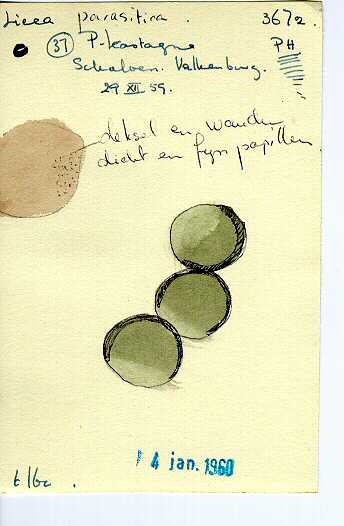 Licea parasitica. 3672
(37) P-kastagne PH
Schaloen. Valkenburg.
29 XII 59.
deksel en wanden
dicht en fijn papilleus
14 jan. 1960